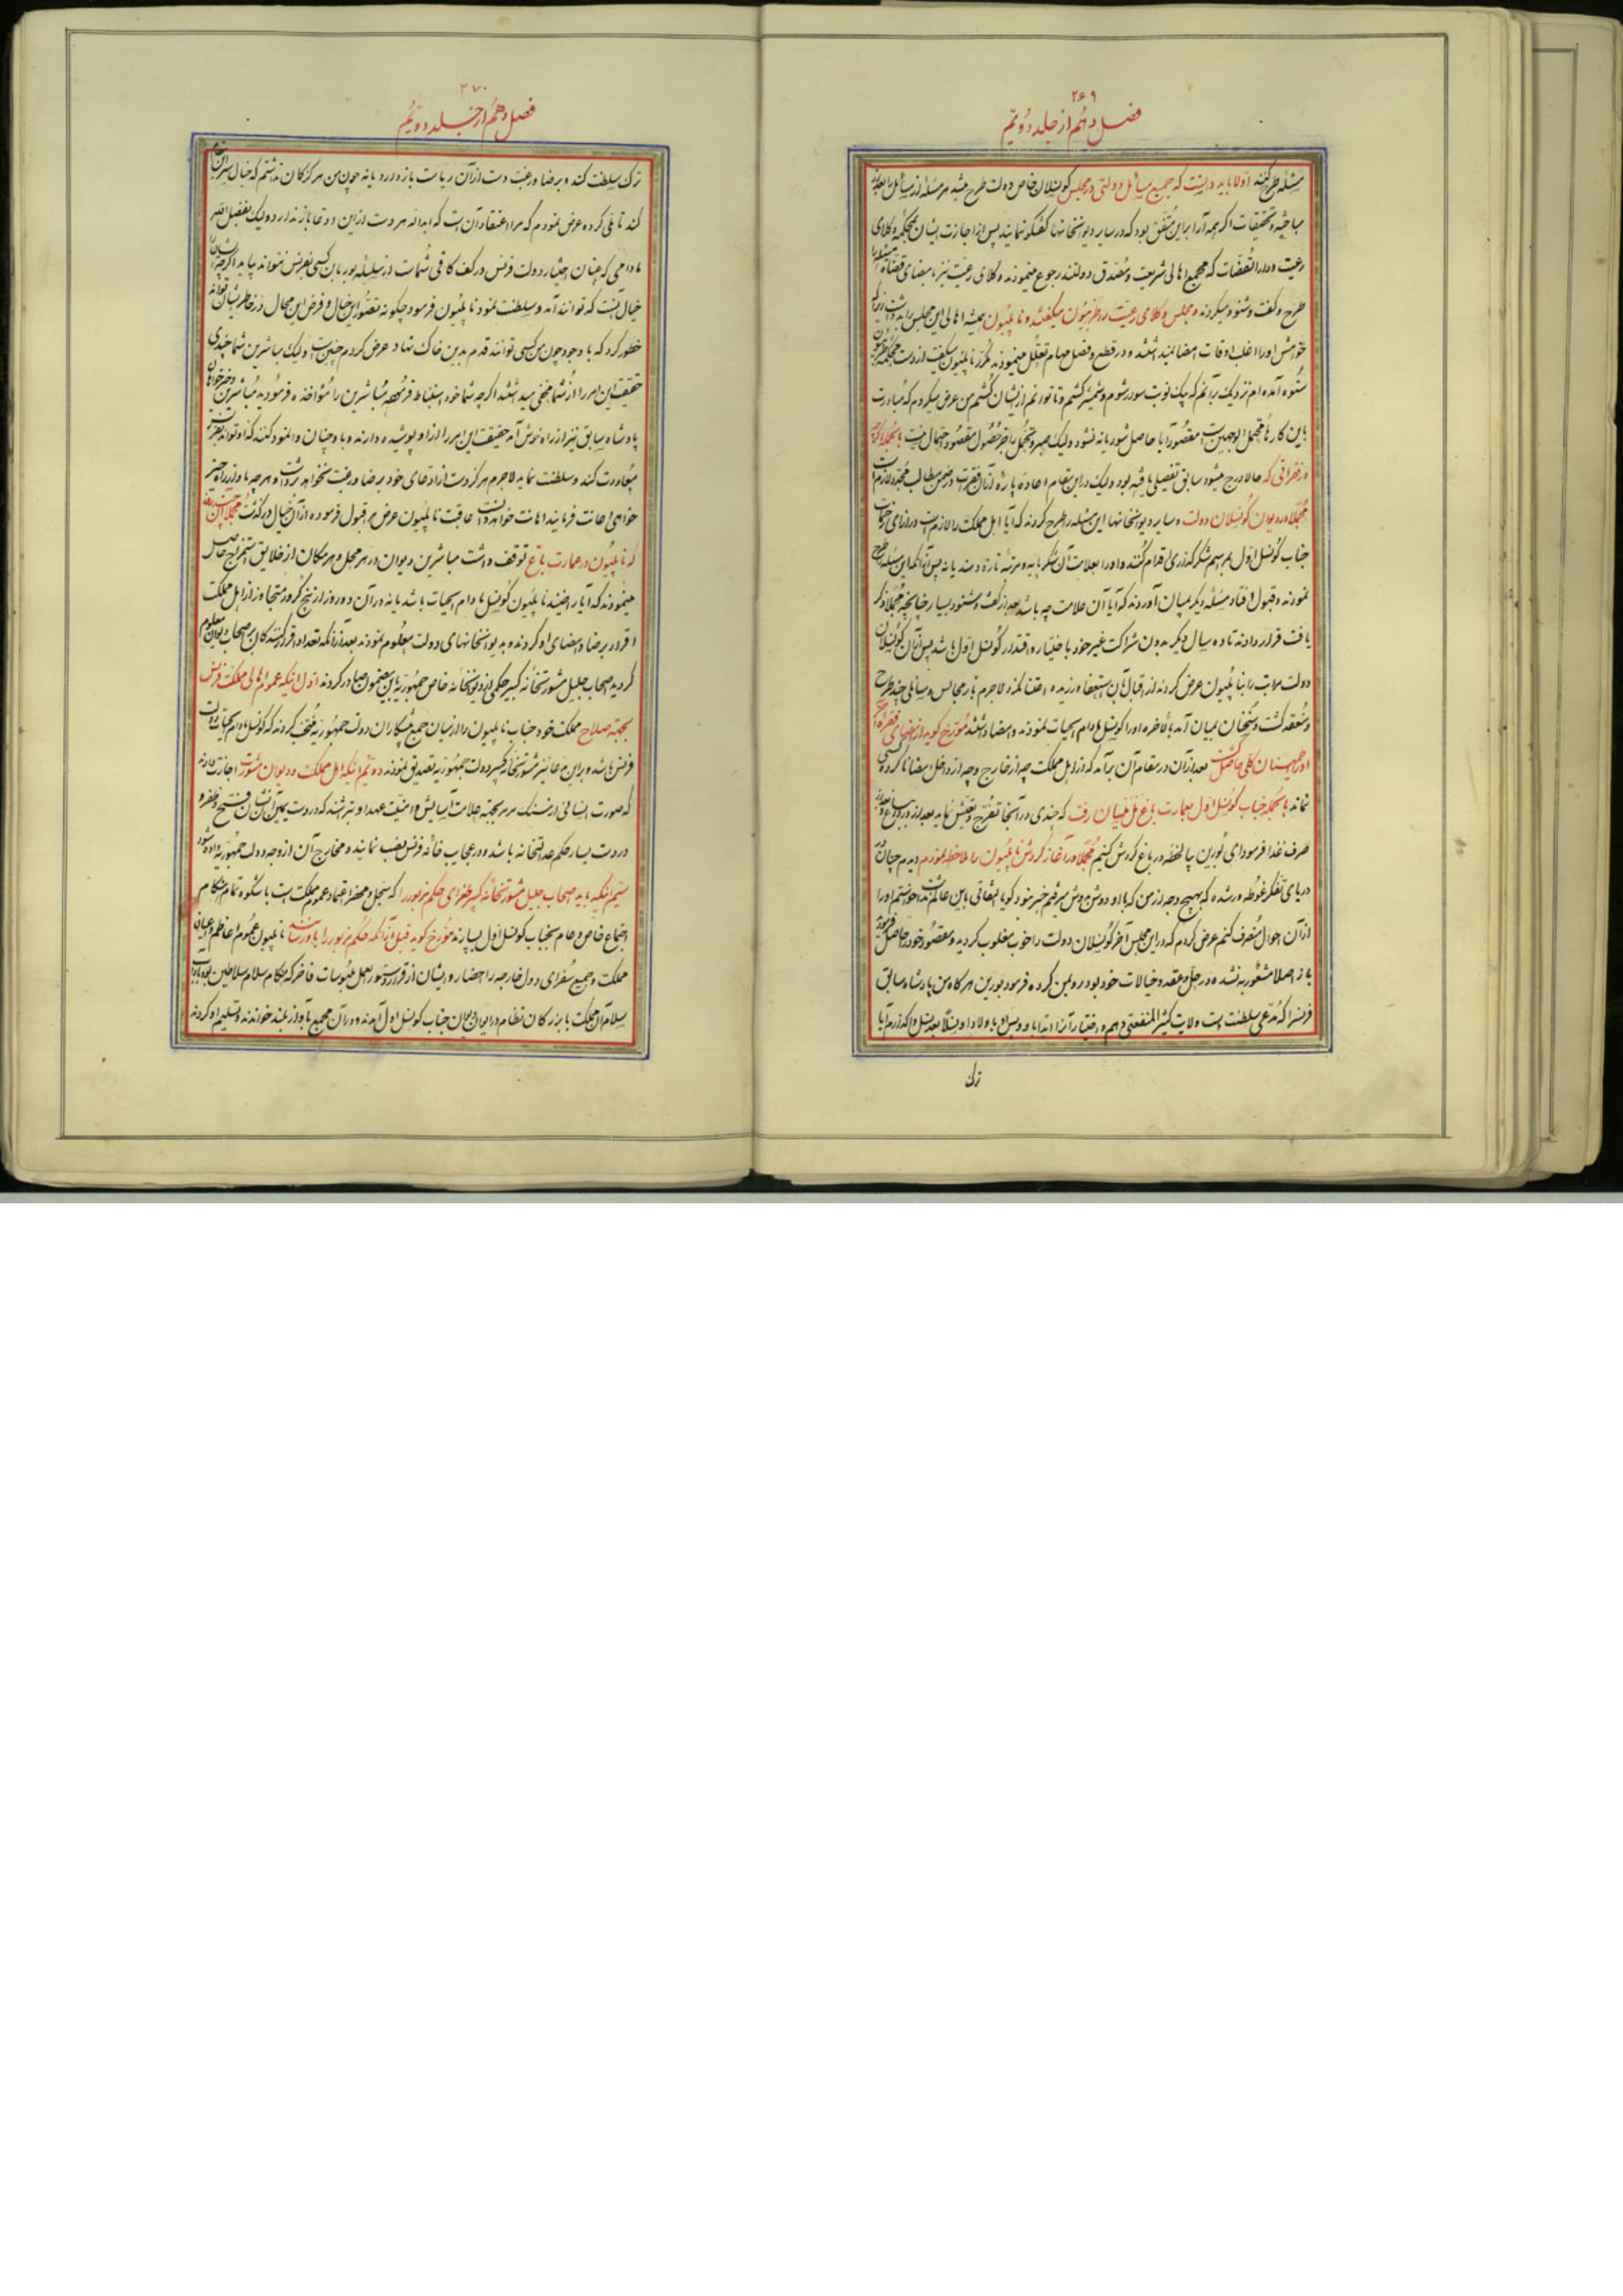 ۲۶۹
فصل دهم از جلد دویّم
مسئله طرح کنند اوّلا باید دانست که جمیع مسائل دولتی در مجلس کونسلان خاص دولت طرح میشد هر مسئله از مسائل را بعد از
مباحثه و تحقیقات اگر همه آرا بر این متّفق بود که در سایر دیوانخانها گفتگو نمایند پس از اجازت ایشان بمحکمه وکلای
رعیت و دار القضات که مجمع اهالی شریعت و مصدّق دولتند رجوع مینمودند وکلای رعیّت نیز بامضای قضاة
طرح و گفت و شنود میکردند و مجلس وکلای رعیّت را میگفتند و ناپلیون همیشه اهالی این مجلس را
خواهش او را اغلب اوقات امضا نمیداشتند و در قطع و فصل مهام تعلّل مینمودند مکرّر ناپلیون میگفت از دست
ستوه آمده‌ام نزدیک برآنم که یک نوبت سوار شوم و شمشیر کشم و تا توانم از ایشان کشم من عرض میکردم که مبادرت
باین کار مقصود آیا حاصل شود یا نه نشود ولیک صبر و تحمل را جز حصول مقصود احتمال نیست
و فقراتی که حالا درج میشود سابق تفصیلی یافته بود ولیک در این مقام اعاده پاره از آن فقرات در ضمن مطالب مجدّد لازم است
مجملا در دیوان کونسلان دولت و سایر دیوانخانها این مسئله را طرح کردند که آیا اهل مملکت را لازم است در ازای زحمات
جناب کونسل اوّل بمراسم شکرگذاری اقدام کنند و او را بعلامت آن شکر پایه و مرتبه تازه دهند یا نه پس از آنکه این مسئله طرح
نمودند و قبول افتاد مسئله دیگر بمیان آوردند که آیا آن علامت چه باشد بعد از گفت و شنود بسیار چنانچه مجملا ذکر
یافت قرار دادند تا ده سال دیگر بدون شراکت غیر خود با اختیار و اقتدار کونسل اوّل باشد پس از آن کونسلان
دولت مراتب را بناپلیون عرض کردند از اقبال آن استعفا ورزیده اعتنا نکرد لاجرم باز مجالس و مسائل چند طرح
و منعقد گشت و سخنان بمیان آمد بالاخره او را کونسل مادام الحیات نمودند و امضا داشتند مورّخ گوید از امضای فقره
اطمینان کلّی حاصل گشت بعد از آن در مقام آن برآمد که از اهل مملکت چه از خارج و چه از داخل امضا ناکرده کسی
نماند بالجمله جناب کونسل اوّل بعمارت باغ رفت که چندی در آنجا تفرّج و تعیّش نماید بعد از
صرف غذا فرمود ای بورین بیا لحظه در باغ گردش کنیم مجملا در آغاز گردش ناپلیون را ملاحظه نمودم دیدم چنان
دریای تفکّر غوطه‌ور شده که بهیچ وجه از من که با او دوش بدوش میرفتم خبر نبود گویا التفاتی باین عالم نداشت خواستم او را
از آن احوال منصرف کنم عرض کردم که در این مجلس آخر کونسلان دولت را خوب مغلوب کردید و مقصود خود را حاصل
باز اصلا مشعّر نشده در حلّ و عقد خیالات خود بود رو بمن کرده فرمود بورین هر گاه من پادشاه سابق
فرنس را که مدّعی سلطنت است ولایت کثیر المنفعتی دهم و اختیار آنرا ابتدا باو و پس از او باولاد او نسلا بعد نسل واگذارم آیا
ترک
۲۷۰
فصل دهم از جلد دویّم
ترک سلطنت کند و برضا و رغبت دست از آن ریاست باز دارد یا نه چون من هرگز گمان نداشتم که خیال
کند تأملی کرده عرض نمودم که مرا اعتقاد آن است که ابدا نه هر دست از این ادّعا باز ندارد ولیک بفضل الله
مادامی که چنان اختیار دولت فرنس در کف کافی شماست از سلسله بوربان کسی بفرنس نتواند بیاید اگرچه
خیال نیست که توانند آمد و سلطنت نمود ناپلیون فرمود چگونه تصوّر این خیال و فرض این محال در خاطر ایشان
خطور کرد که با وجود چون من کسی توانند قدم بدین خاک نهاد عرض کردم چنین است ولیک مباشرین شما چندی
حقیقت این امر را از شما مخفی میداشتند اگرچه شما خود استنباط فرموده مباشرین را مؤاخذه فرمودید مباشرین
پادشاه سابق نیز از راه خوش‌آمد حقیقت این امر را از او پوشیده دارند و باو چنان وانمود کنند که او تواند بفرنس
معاودت کند و سلطنت نماید لاجرم هرگز دست از ادّعای خود برضا و رغبت نخواهد برداشت و هر چه باو از راه
خواهی اعانت فرمایند اهانت خواهد دانست عاقبت ناپلیون عرض مرا قبول فرموده از آن خیال درگذشت
که ناپلیون در عمارت باغ توقّف داشت مباشرین دیوان در هر محل و هر مکان از خلایق استمزاج حاصل
مینمودند که آیا راضیند ناپلیون کونسل مادام الحیات باشد یا نه در آن دو روز از پنج کرور متجاوز از اهل مملکت
اقرار برضا و امضای او کردند و بدیوانخانهای دولت معلوم نمودند بعد از آنکه تعداد اقرار کنندگان بر اصحاب دیوان معلوم
گردید اصحاب جلیل مشورتخانه کبیر حکمی از دیوانخانه خاص جمهوریّه باین مضمون صادر کردند اوّل اینکه عموم اهالی مملکت فرنس
بجهت صلاح مملکت خود جناب ناپلیون را از میان جمیع پیشکاران دولت جمهوریّه منتخب کردند که کونسل مادام الحیات دولت
فرنس باشد و براین مدّعا نیز مشورتخانه کبیر دولت جمهوریّه تصدیق نمودند دویّم اینکه اهل مملکت و دیوان مشورت اجازت دادند
که صورت انسانی از سنگ مرمر بجهت علامت آسایش و امنیّت عهد او بتراشند که در دست یمین آن نشان فتح و ظفر و
در دست یسار حکم عدالتخانه باشد و در عجایب‌خانه فرنس نصب نمایند و مخارج آن از وجه دولت جمهوریّه داده شود
سیّم اینکه باید اصحاب جلیل مشورتخانه کبیر طغرای حکم مزبور را که سجل و محضر اعتماد عموم مملکت است با شکوه تمام هنگام
اجتماع خاص و عام بجناب کونسل اوّل بسپارند مورّخ گوید قبل از آنکه حکم مزبور را باو رسانند ناپلیون عموم اعاظم و اعیان
مملکت و جمیع سفرای دول خارجه را احضار و ایشان از قرار دستور العمل ملبوسات فاخر که هنگام سلام سلاطین بود
سلام آن مملکت با بزرگان نظام در ایوان جناب کونسل اوّل آمدند و در آن مجمع بآواز بلند خواندند و تسلیم او کردند